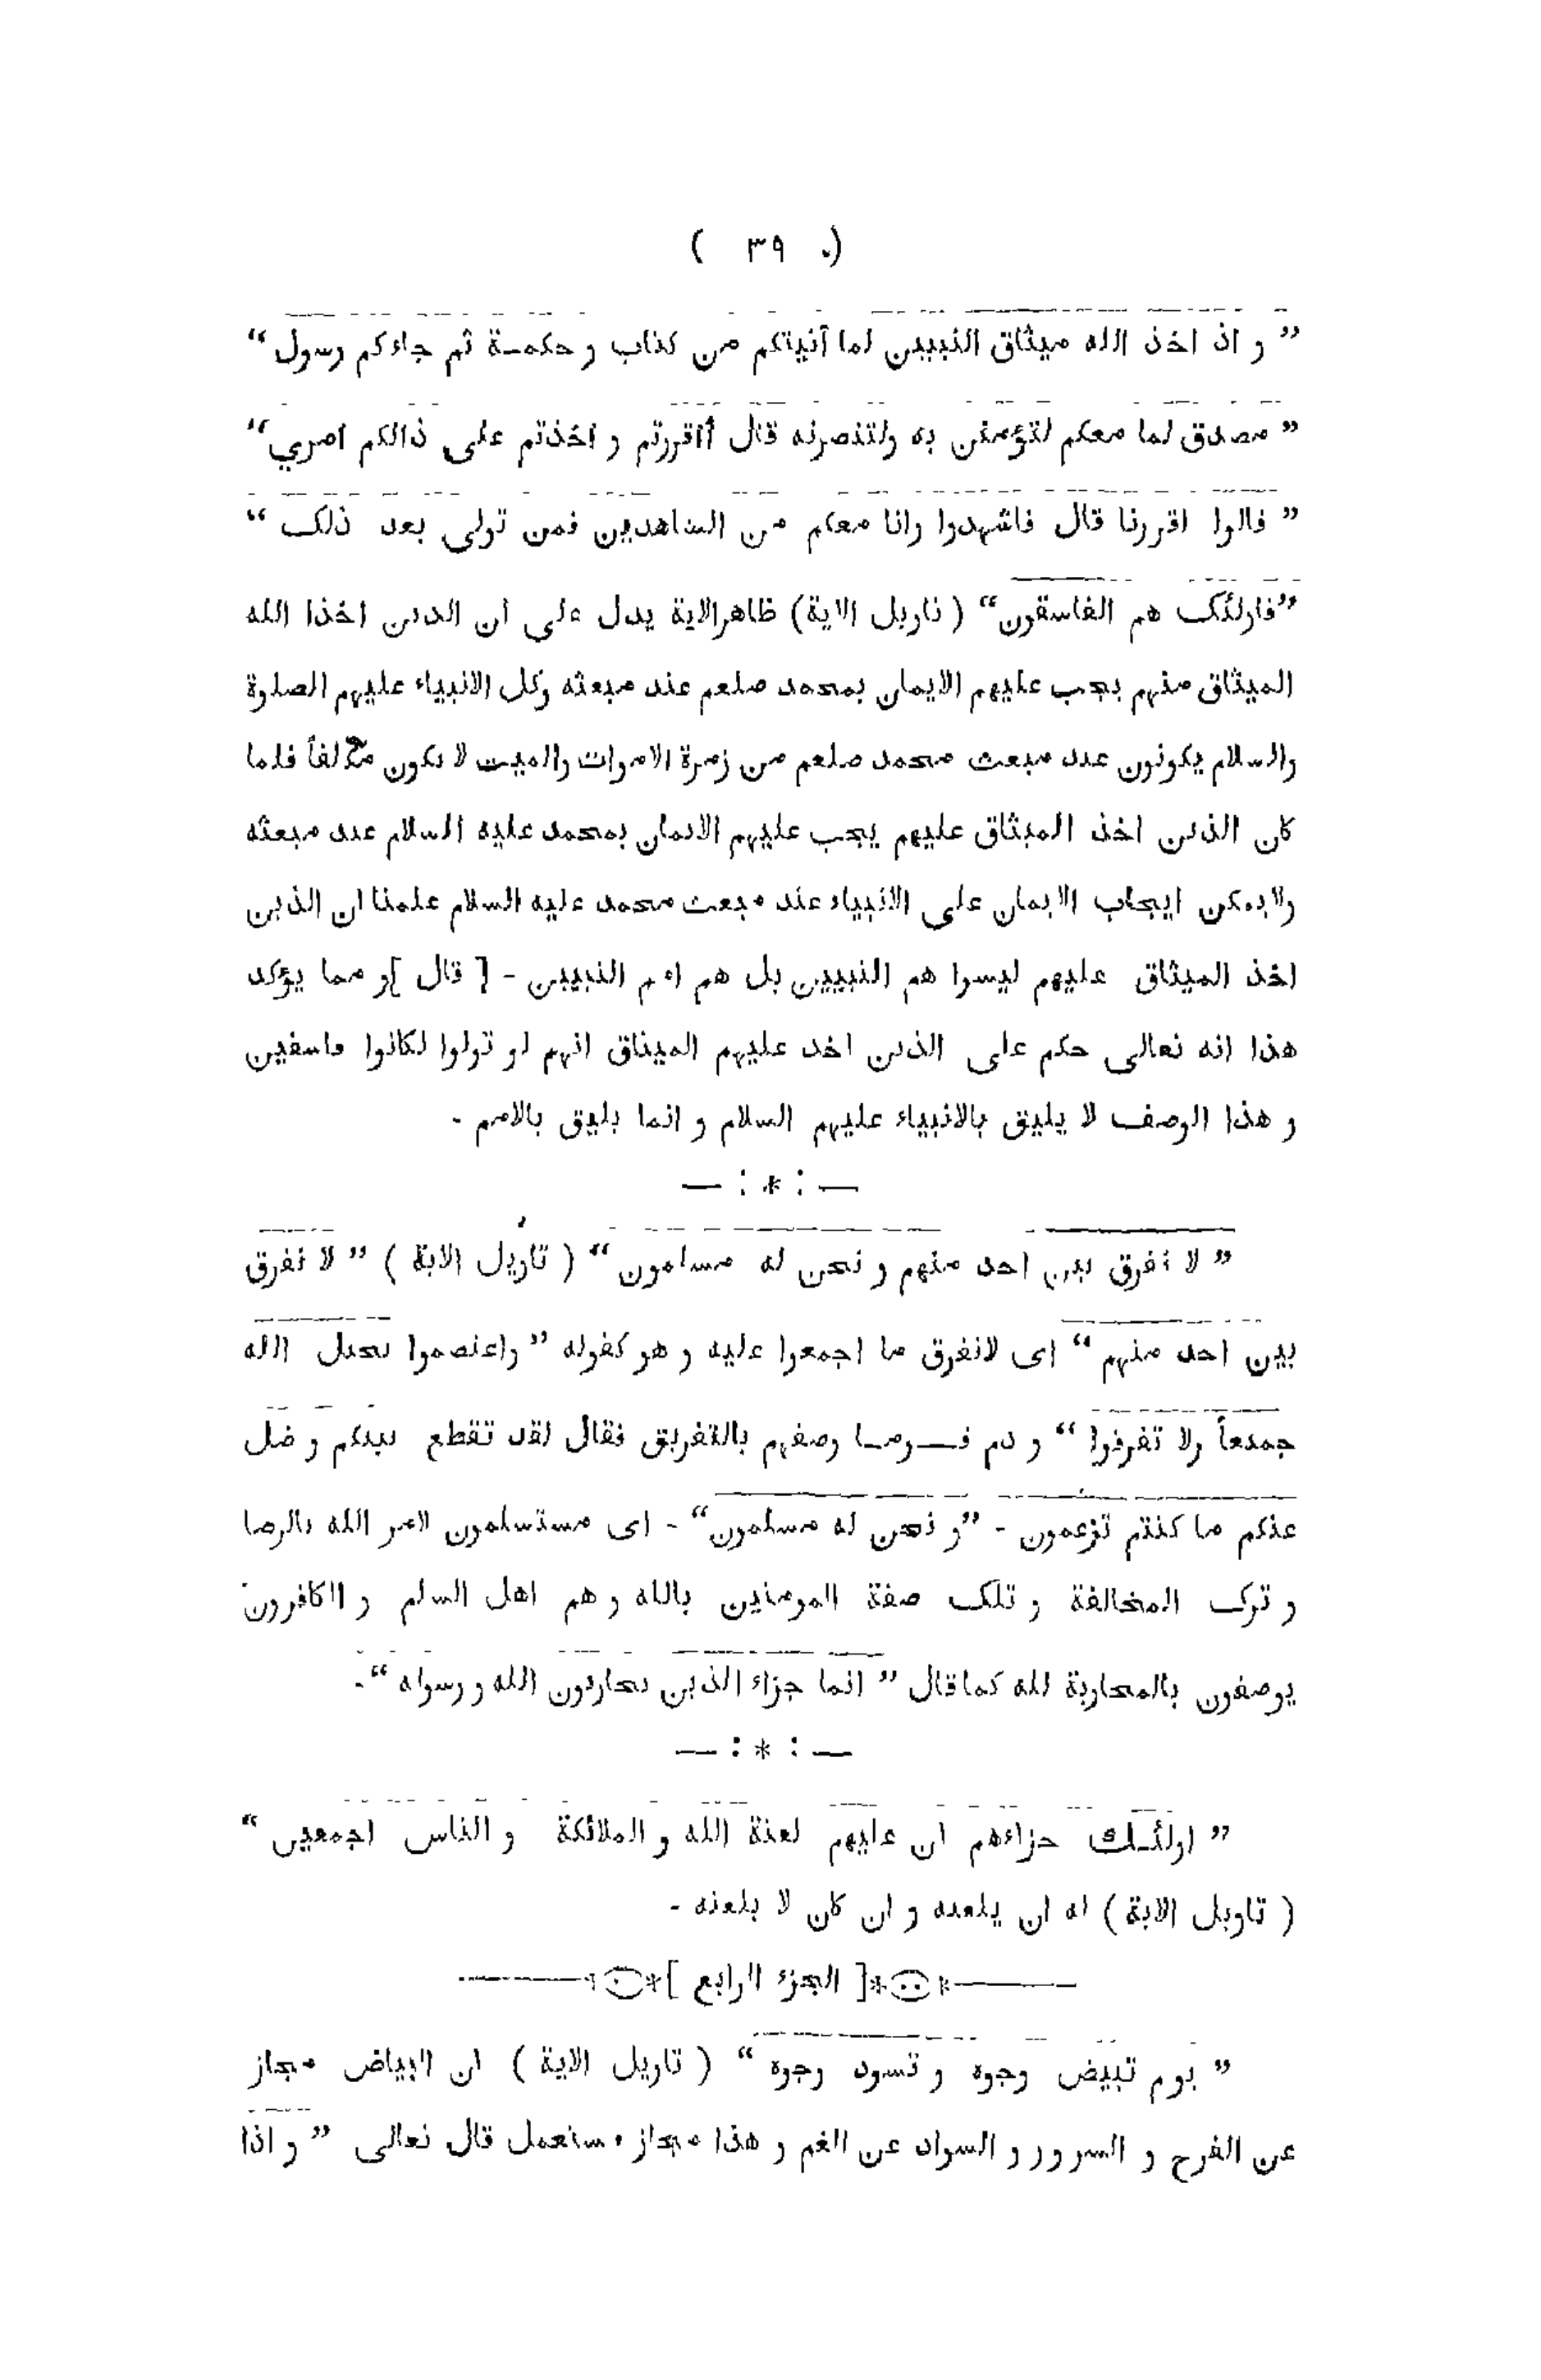 ( ٣٩ )
” و اذ اخذ الله ميثاق النبيين لما آتيتكم من كتاب و حكمة ثم جاءكم رسول “
” مصدق لما معكم لتؤمنن به ولتنصرنه قال أاقررتم و اخذتم على ذالكم اصري “
” قالوا اقررنا قال فاشهدوا وانا معكم من الشاهدين فمن تولى بعد ذلك “
”فاولئك هم الفاسقون“ ( تاويل الاية) ظاهرالاية يدل على ان الذين اخذا الله
الميثاق منهم يجب عليهم الايمان بمحمد صلعم عند مبعثه وكل الانبياء عليهم الصلوة
والسلام يكونون عند مبعث محمد صلعم من زمرة الاموات والميت لا يكون مكلفاً فلما
كان الذين اخذ الميثاق عليهم يجب عليهم الايمان بمحمد عليه السلام عند مبعثه
ولايمكن ايجاب الايمان على الانبياء عند مبعث محمد عليه السلام علمنا ان الذين
اخذ الميثاق عليهم ليسوا هم النبيين بل هم امم النبيين - [ قال ]و مما يؤكد
هذا انه تعالى حكم على الذين اخذ عليهم الميثاق انهم لو تولوا لكانوا فاسقين
و هذا الوصف لا يليق بالانبياء عليهم السلام و انما يليق بالامم -
— : * : —
” لا نفرق بين احد منهم و نحن له مسلمون “ ( تاويل الاية ) ” لا نفرق
بين احد منهم “ اى لانفرق ما اجمعوا عليه و هو كقوله ” واعتصموا بحبل الله
جميعاً ولا تفرقوا “ و ذم قــومــا وصفهم بالتفريق فقال لقد تقطع بينكم و ضل
عنكم ما كنتم تزعمون - ”و نحن له مسلمون“ - اى مستسلمون لامر الله بالرضا
و ترك المخالفة و تلك صفة المومنين بالله و هم اهل السلم و الكافرون
يوصفون بالمحاربة لله كما قال ” انما جزاء الذين يحاربون الله و رسوله “-
— : * : —
” اولئـلك جزاءهم ان عليهم لعنة الله و الملائكة و الناس اجمعين “
( تاويل الاية ) له ان يلعنه و ان كان لا يلعنه -
*[ الجزء الرابع ]*
” يوم تبيض وجوه و تسود وجوه “ ( تاويل الاية ) ان البياض مجاز
عن الفرح و السرور و السواد عن الغم و هذا مجاز مستعمل قال تعالى ” و اذا